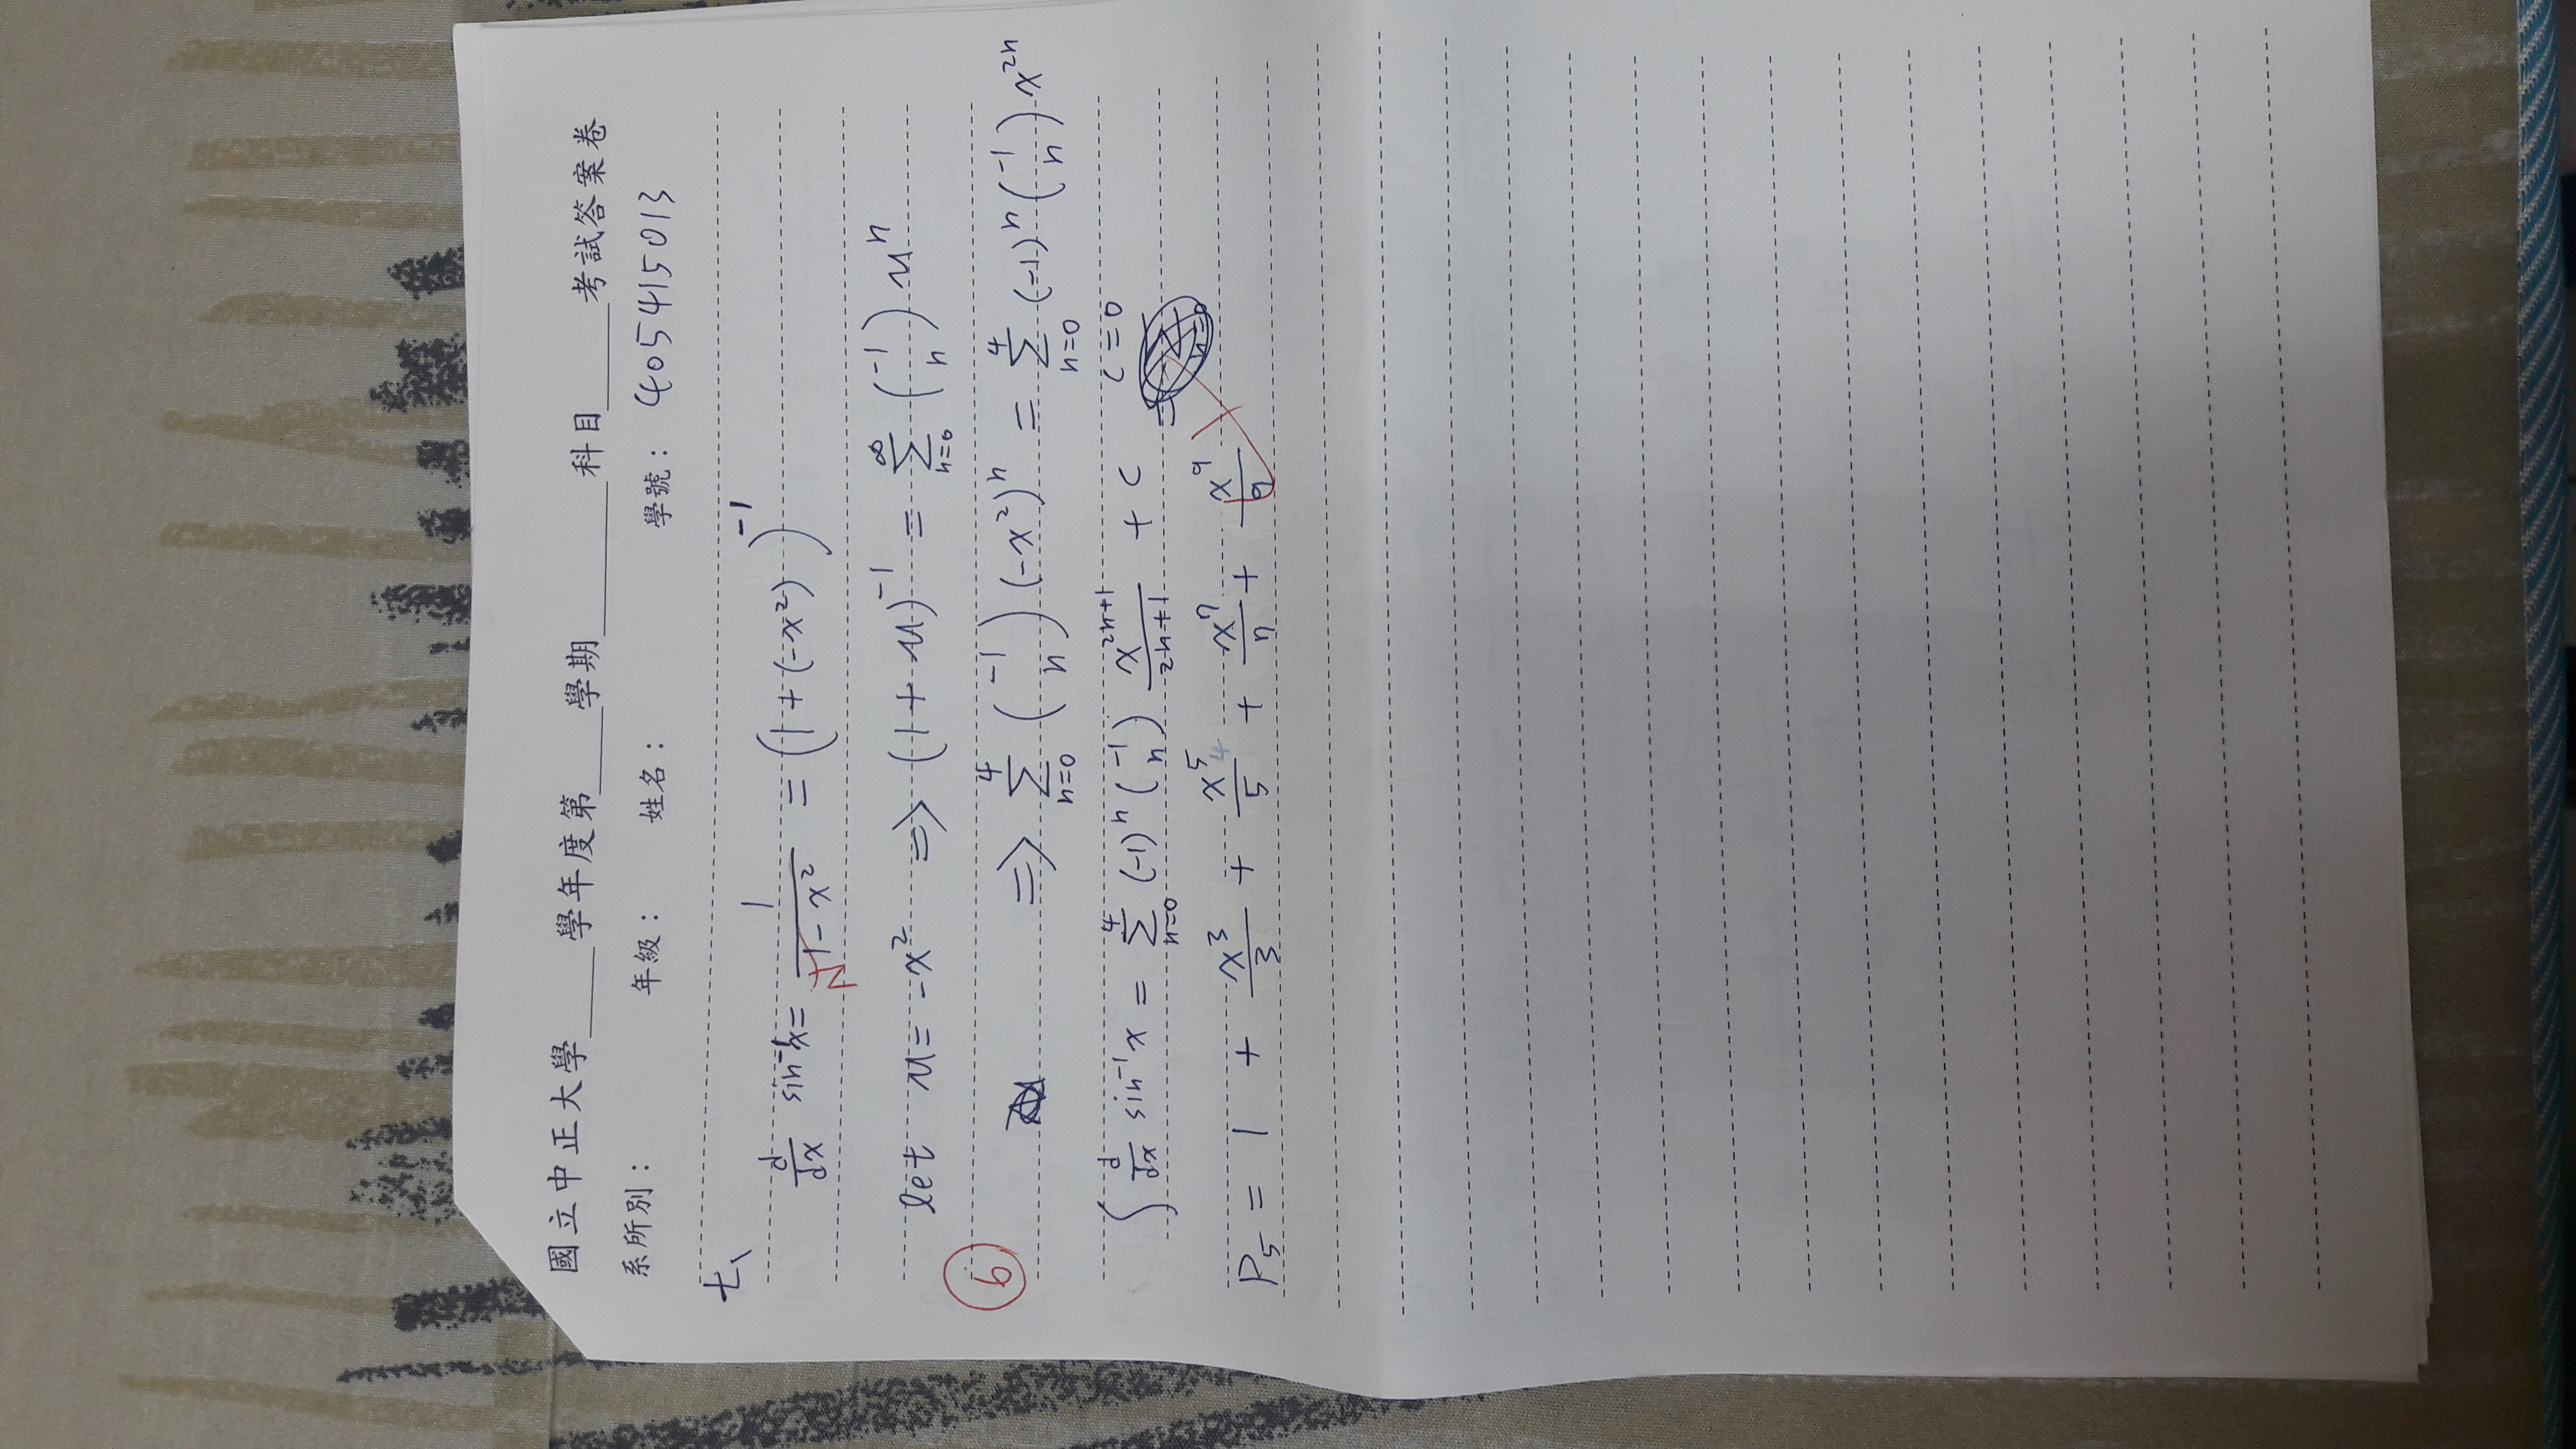 國立中正大學____學年度第____學期________科目_____考試答案卷
系所別： 年級： 姓名： 學號： 405415013
t、
d/dx sin⁻¹x = 1/√(1-x²) = (1+(-x²))⁻¹
let u = -x² ⇒ (1+u)⁻¹ = ∑_{n=0}^{∞} (-1 n) uⁿ
6
⇒ ∑_{n=0}^{4} (-1 n) (-x²)ⁿ = ∑_{n=0}^{4} (-1)ⁿ (-1 n) x²ⁿ
∫ d/dx sin⁻¹x = ∑_{n=0}^{4} (-1)ⁿ (-1 n) x²ⁿ⁺¹/2n+1 + c c=0
P₅ = 1 + x³/3 + x⁵/5 + x⁷/7 + x⁹/9